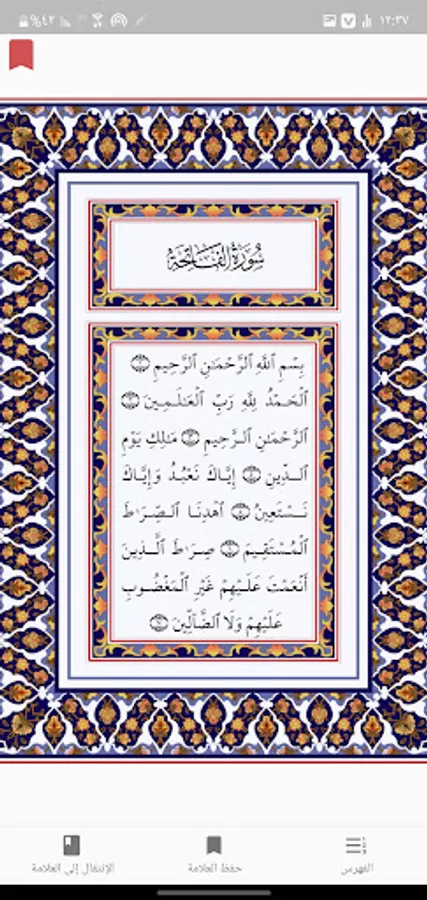 %٤٢ ١٢:٣٧
سُورَةُ الفَاتِحَةِ
بِسْمِ ٱللَّهِ ٱلرَّحْمَٰنِ ٱلرَّحِيمِ ١
ٱلْحَمْدُ لِلَّهِ رَبِّ ٱلْعَٰلَمِينَ ٢
ٱلرَّحْمَٰنِ ٱلرَّحِيمِ ٣ مَٰلِكِ يَوْمِ
ٱلدِّينِ ٤ إِيَّاكَ نَعْبُدُ وَإِيَّاكَ
نَسْتَعِينُ ٥ ٱهْدِنَا ٱلصِّرَٰطَ
ٱلْمُسْتَقِيمَ ٦ صِرَٰطَ ٱلَّذِينَ
أَنْعَمْتَ عَلَيْهِمْ غَيْرِ ٱلْمَغْضُوبِ
عَلَيْهِمْ وَلَا ٱلضَّآلِّينَ ٧
الفهرس حفظ العلامة الإنتقال إلى العلامة